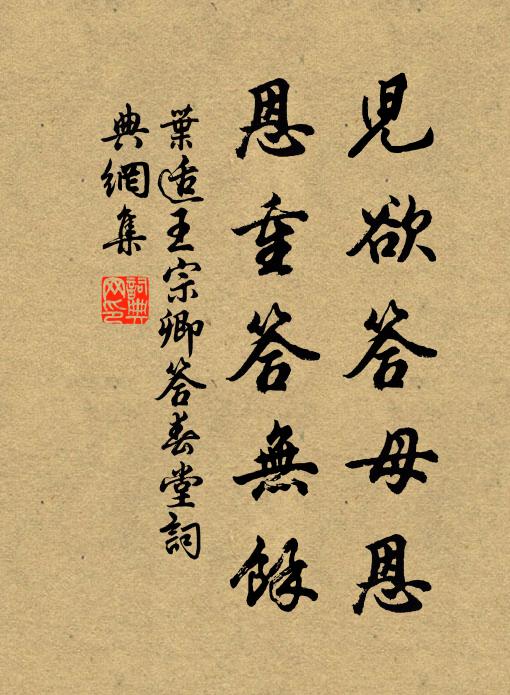 兒欲答母恩
恩重答無餘
葉适王宗卿答春堂詞
典網集
詞典网印